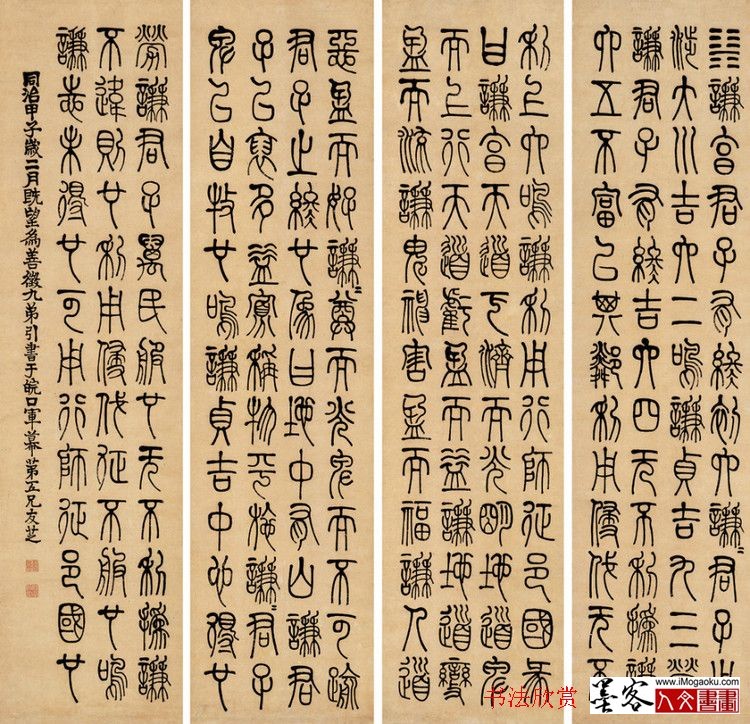 ䷎謙亨君子有終初六謙〻君子用
涉大川吉六二鳴謙貞吉九三勞
謙君子有終吉六四无不利撝謙
六五不富以其鄰利用侵伐无不
利上六鳴謙利用行師征邑國彖
曰謙亨天道下濟而光明地道卑
而上行天道虧盈而益謙地道變
盈而流謙鬼神害盈而福謙人道
惡盈而好謙〻尊而光卑而不可踰
君子之終也象曰地中有山謙君
子以裒多益寡稱物平施謙〻君子
卑以自牧也鳴謙貞吉中心得也
勞謙君子萬民服也无不利撝謙
不違則也利用侵伐征不服也鳴
謙志未得也可用行師征邑國也
同治甲子歲二月既望為善徵九弟引書于皖口軍幕弟五兄友芝
书法欣赏
墨客
www.iMogaoku.com
人文書畫